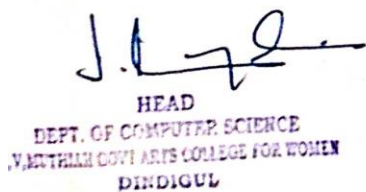 HEAD
DEPT. OF COMPUTER SCIENCE
.V.MUTHIAH GOVT ARTS COLLEGE FOR WOMEN
DINDIGUL